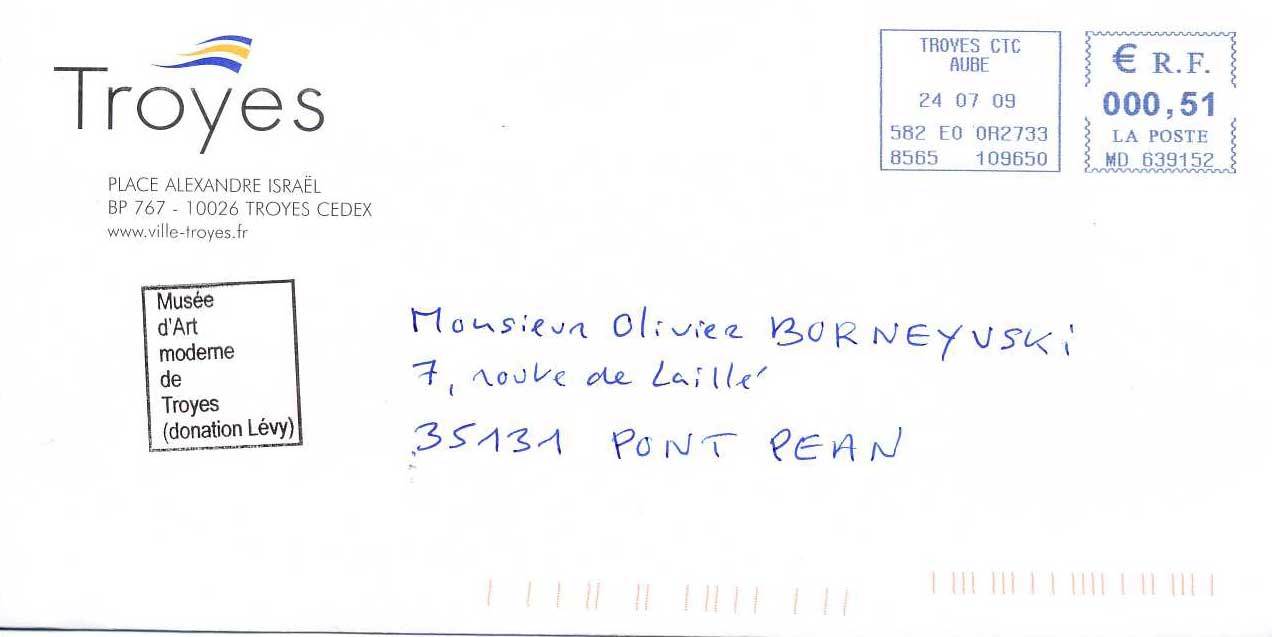 Troyes
PLACE ALEXANDRE ISRAËL
BP 767 - 10026 TROYES CEDEX
www.ville-troyes.fr
TROYES CTC
AUBE
24 07 09
582 E0 0R2733
8565 109650
€ R.F.
000,51
LA POSTE
MD 639152
Musée
d'Art
moderne
de
Troyes
(donation Lévy)
Monsieur Olivier BORNEYVSKi
7, route de Laillé
35131 PONT PEAN